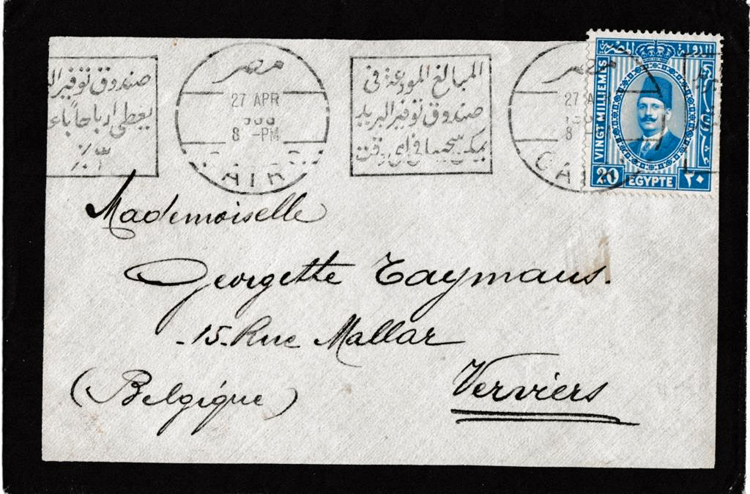 صندوق توفير ال
يعطي ارباحا با
مصر
27 APR
8 -PM
CAIRO
المبالغ المودعة فى
صندوق توفير البريد
يمكن سحبها فى اى وقت
مصر
27 A
8
CAI
VINGT MILLIEMES
20
EGYPTE
٢٠
Mademoiselle
Georgette Taymans.
-15-Rue Mallar
Verviers
(Belgique)